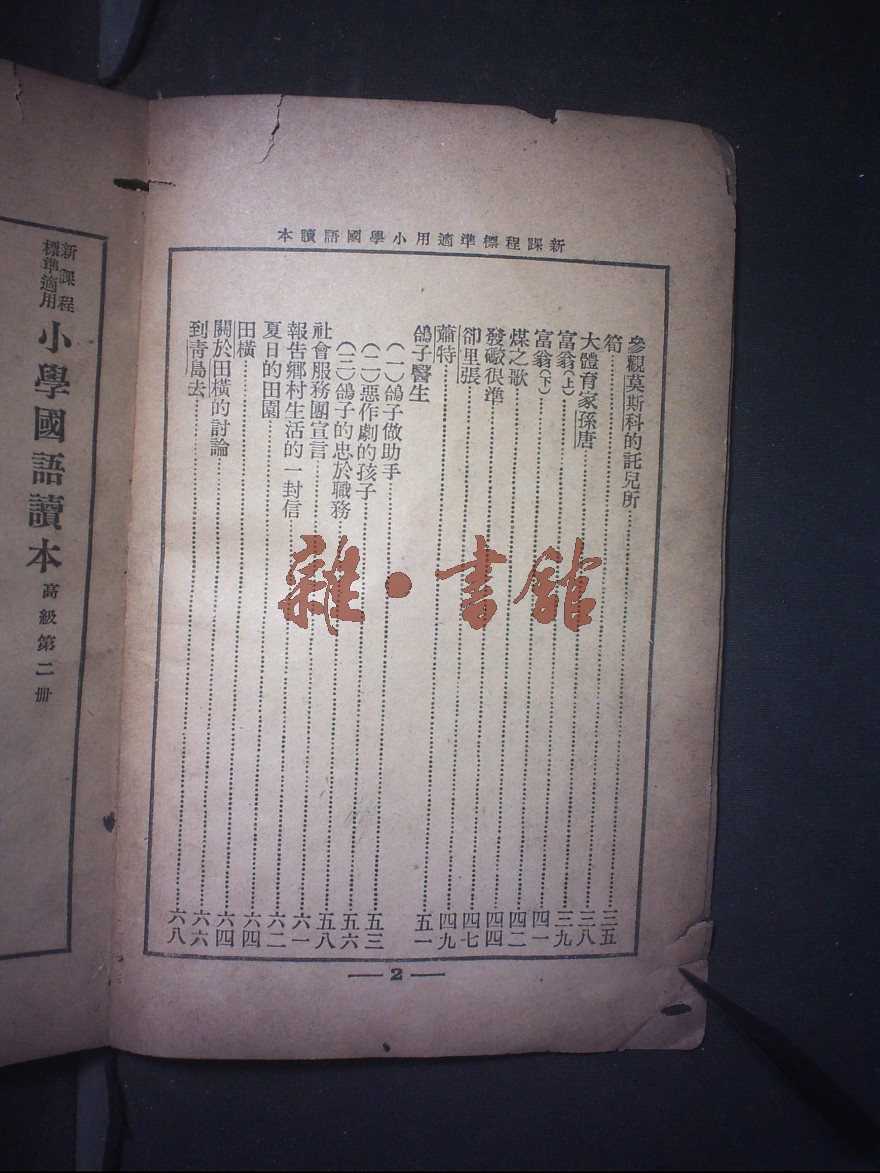 新課程標準適用小學國語讀本
參觀莫斯科的託兒所……三五
筍……三八
大體育家孫唐……三九
富翁(上)……四一
富翁(下)……四二
煤之歌……四四
發礮很準……四七
卻里張……四九
蕭特……五一
鴿子醫生
(一)鴿子做助手……五三
(二)惡作劇的孩子……五六
(三)鴿子的忠於職務……五八
社會服務團宣言……六一
報告鄉村生活的一封信……六二
夏日的田園……六四
田橫……六四
關於田橫的討論……六六
到青島去……六八
2
新課程
標準適用
小學國語讀本 高級第二冊
雜·書館